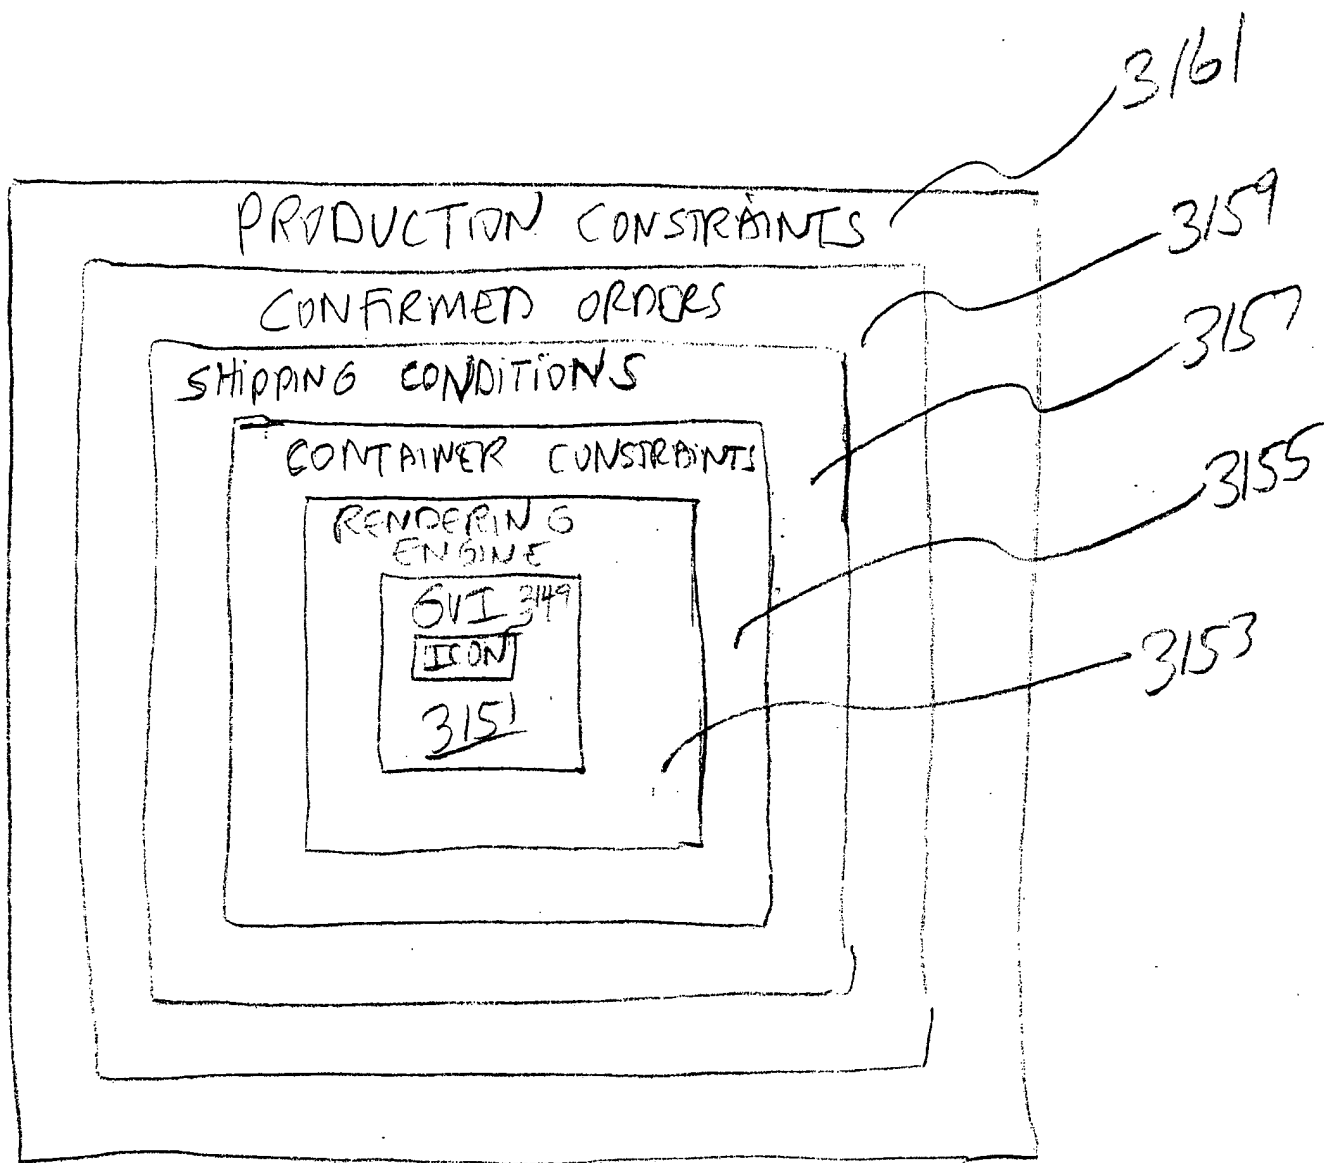 3161
PRODUCTION CONSTRAINTS
3159
CONFIRMED ORDERS
3157
SHIPPING CONDITIONS
CONTAINER CONSTRAINTS
3155
RENDERING
ENGINE
GUI 3149
ICON
3151
3153